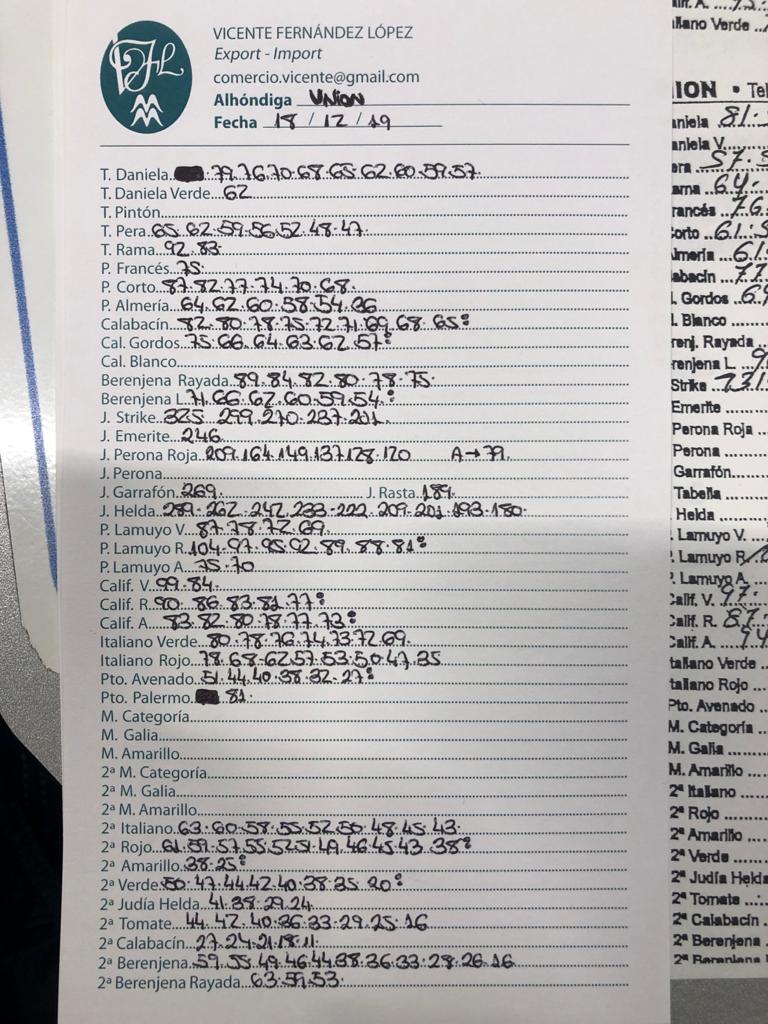 VICENTE FERNÁNDEZ LÓPEZ
Export - Import
comercio.vicente@gmail.com
Alhóndiga UNION
Fecha 18 / 12 / 19
T. Daniela 79.76.70.68.65.62.60.59.57.
T. Daniela Verde 62
T. Pintón
T. Pera 65.62.59.56.52.48.47.
T. Rama 92.83.
P. Francés 75.
P. Corto 87.82.77.74.70.68.
P. Almería 64.62.60.58.54.
Calabacín 82.80.78.75.72.71.69.68.65:
Cal. Gordos 75.66.64.63.62.57:
Cal. Blanco
Berenjena Rayada 89.84.82.80.78.75.
Berenjena L. 71.66.62.60.59.54:
J. Strike 325.299.270.237.201.
J. Emerite 246
J. Perona Roja 209.164.149.137.128.120 A→79.
J. Perona
J. Garrafón 269 J. Rasta 184.
J. Helda 262.247.233-222.209.201.193.180.
P. Lamuyo V. 87.78.72.69.
P. Lamuyo R. 104.97.95.92.89.88.81:
P. Lamuyo A. 75.70
Calif. V. 99.84.
Calif. R. 90.86.83.81.77:
Calif. A. 83.82.80.78.77.73:
Italiano Verde 80.78.76.74.73.72.69.
Italiano Rojo 78.68-62.57.53.50.47.35
Pto. Avenado 51.44.40.38.32-27:
Pto. Palermo 81.
M. Categoría
M. Galia
M. Amarillo
2ª M. Categoría
2ª M. Galia
2ª M. Amarillo
2ª Italiano 63.60.58.55.52.50.48.45.43.
2ª Rojo 61.59.57.55.52.51.49.46.45.43.38:
2ª Amarillo 38.25:
2ª Verde 50.47.44.42.40.38.35.20:
2ª Judía Helda 41.38.29.24.
2ª Tomate 44.42.40.36.33.29.25.16
2ª Calabacín 27.24.21.18.11.
2ª Berenjena 59.55.49.46.44.38.36.33.28.26.16
2ª Berenjena Rayada 63.59.53.
Italiano Verde
J. Gordos
l. Blanco
Emerite
Perona Roja
Perona
Garrafón
Tabella
Helda
Lamuyo V.
Lamuyo R.
Lamuyo A.
Calif. V. 97.
Calif. R.
Calif. A.
Italiano Verde
Italiano Rojo
Pto. Avenado
M. Categoría
M. Galia
M. Amarillo
2ª Italiano
2ª Rojo
2ª Amarillo
2ª Verde
2ª Judía Helda
2ª Tomate
2ª Calabacín
2ª Berenjena